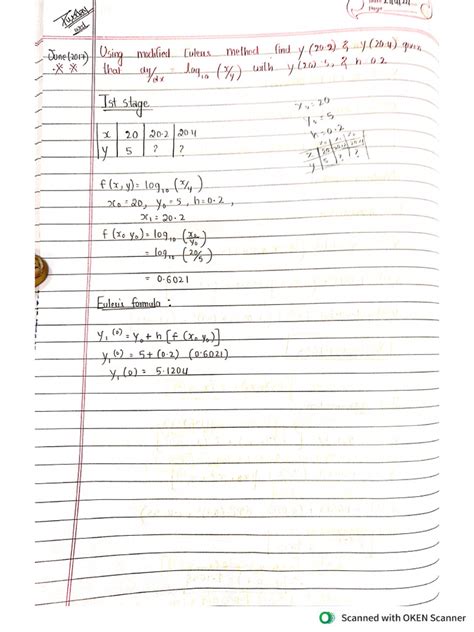 June (2017)
Using modified Euler's method find y (20.2) & y (20.4) given
that dy/dx = log₁₀ (x/y) with y (20) = 5, & h = 0.2
Ist stage
x₀ = 20
y₀ = 5
h = 0.2
x 20 20.2 20.4
y 5 ? ?
f (x, y) = log₁₀ (x/y)
x₀ = 20, y₀ = 5, h = 0.2,
x₁ = 20.2
f (x₀ y₀) = log₁₀ (x₀/y₀)
= log₁₀ (20/5)
= 0.6021
Euler's formula :
y₁⁽⁰⁾ = y₀ + h [f (x₀ y₀)]
y₁⁽⁰⁾ = 5 + (0.2) (0.6021)
y₁(0) = 5.1204
Scanned with OKEN Scanner